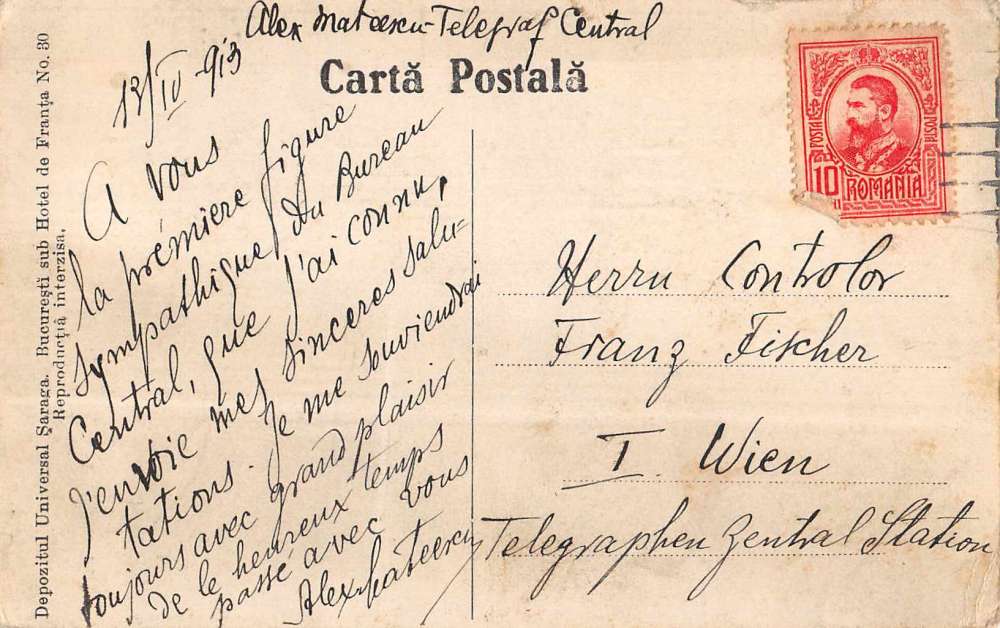 Alex Mateescu - Telegraf Central
Cartă Postală
13/IV 913
A vous
la prémiere figure
sympathique du Bureau
Central, que j'ai connu,
j'envoie mes sinceres salu-
tations. Je me souviendrai
toujours avec grand plaisir
de le heureux temps
passé avec vous
Alex Mateescu
POSTA
POSTA
10
ROMANIA
Herrn Controlor
Franz Fischer
I Wien
Telegraphen Zentral Station
Depozitul Universal Șaraga. București sub Hotel de Franța No. 30
Reproducția interzisa.